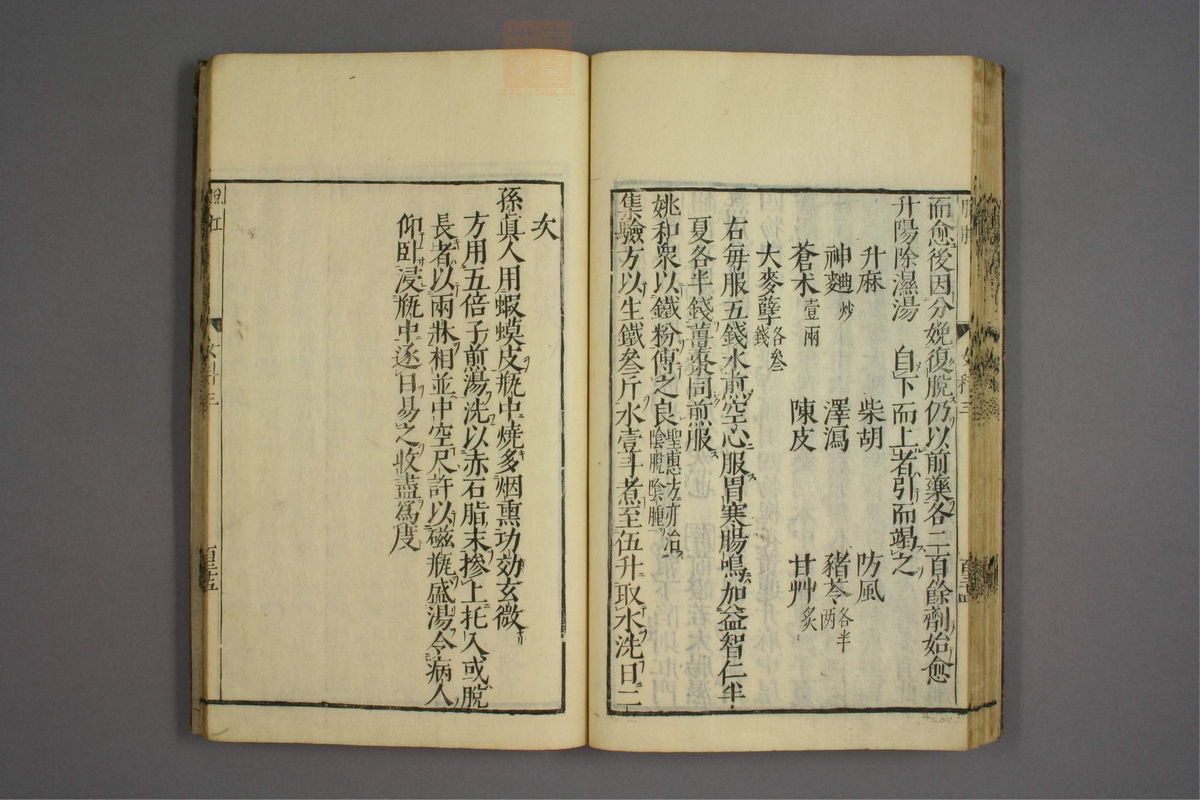 而愈後因分娩復脫仍以前藥各二百餘劑始愈
升陽除濕湯 自下而上者引而竭之
升麻 柴胡 防風
神麯炒 澤瀉 豬苓各半兩
蒼朮壹兩 陳皮 甘艸炙
大麥孽各叁錢
右每服五錢水煎空心服胃寒腸鳴加益智仁半
夏各半錢薑棗同煎服
姚和衆以鐵粉傅之良聖惠方前治陰脫陰腫
集驗方以生鐵叁斤水壹斗煮至伍升取水洗日二
次
孫真人用蝦蟆皮瓶中燒多烟熏功効玄微
方用五倍子煎湯洗以赤石脂末摻上托入或脫
長者以兩牀相並中空尺許以磁瓶盛湯令病人
仰臥浸瓶中逐日易之收盡爲度
脫肛